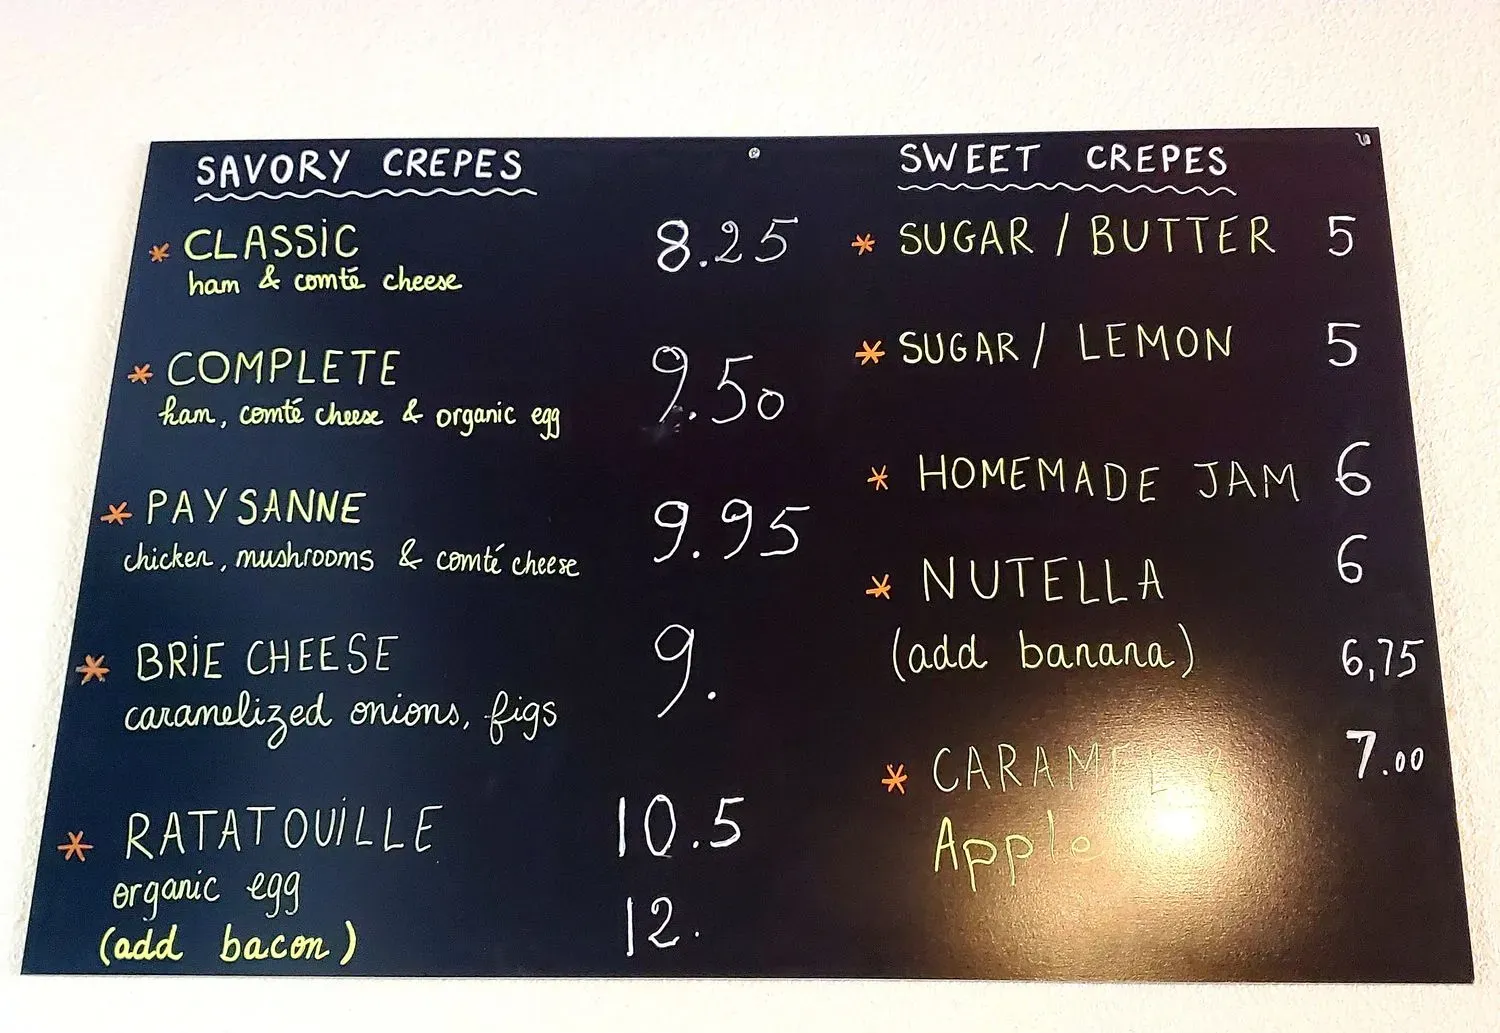 SAVORY CREPES
* CLASSIC 8.25
ham & comté cheese
* COMPLETE 9.50
ham, comté cheese & organic egg
* PAYSANNE 9.95
chicken, mushrooms & comté cheese
* BRIE CHEESE 9.
caramelized onions, figs
* RATATOUILLE 10.5
organic egg
(add bacon) 12.
SWEET CREPES
* SUGAR / BUTTER 5
* SUGAR / LEMON 5
* HOMEMADE JAM 6
* NUTELLA 6
(add banana) 6,75
* CARAMEL 7.00
Apple